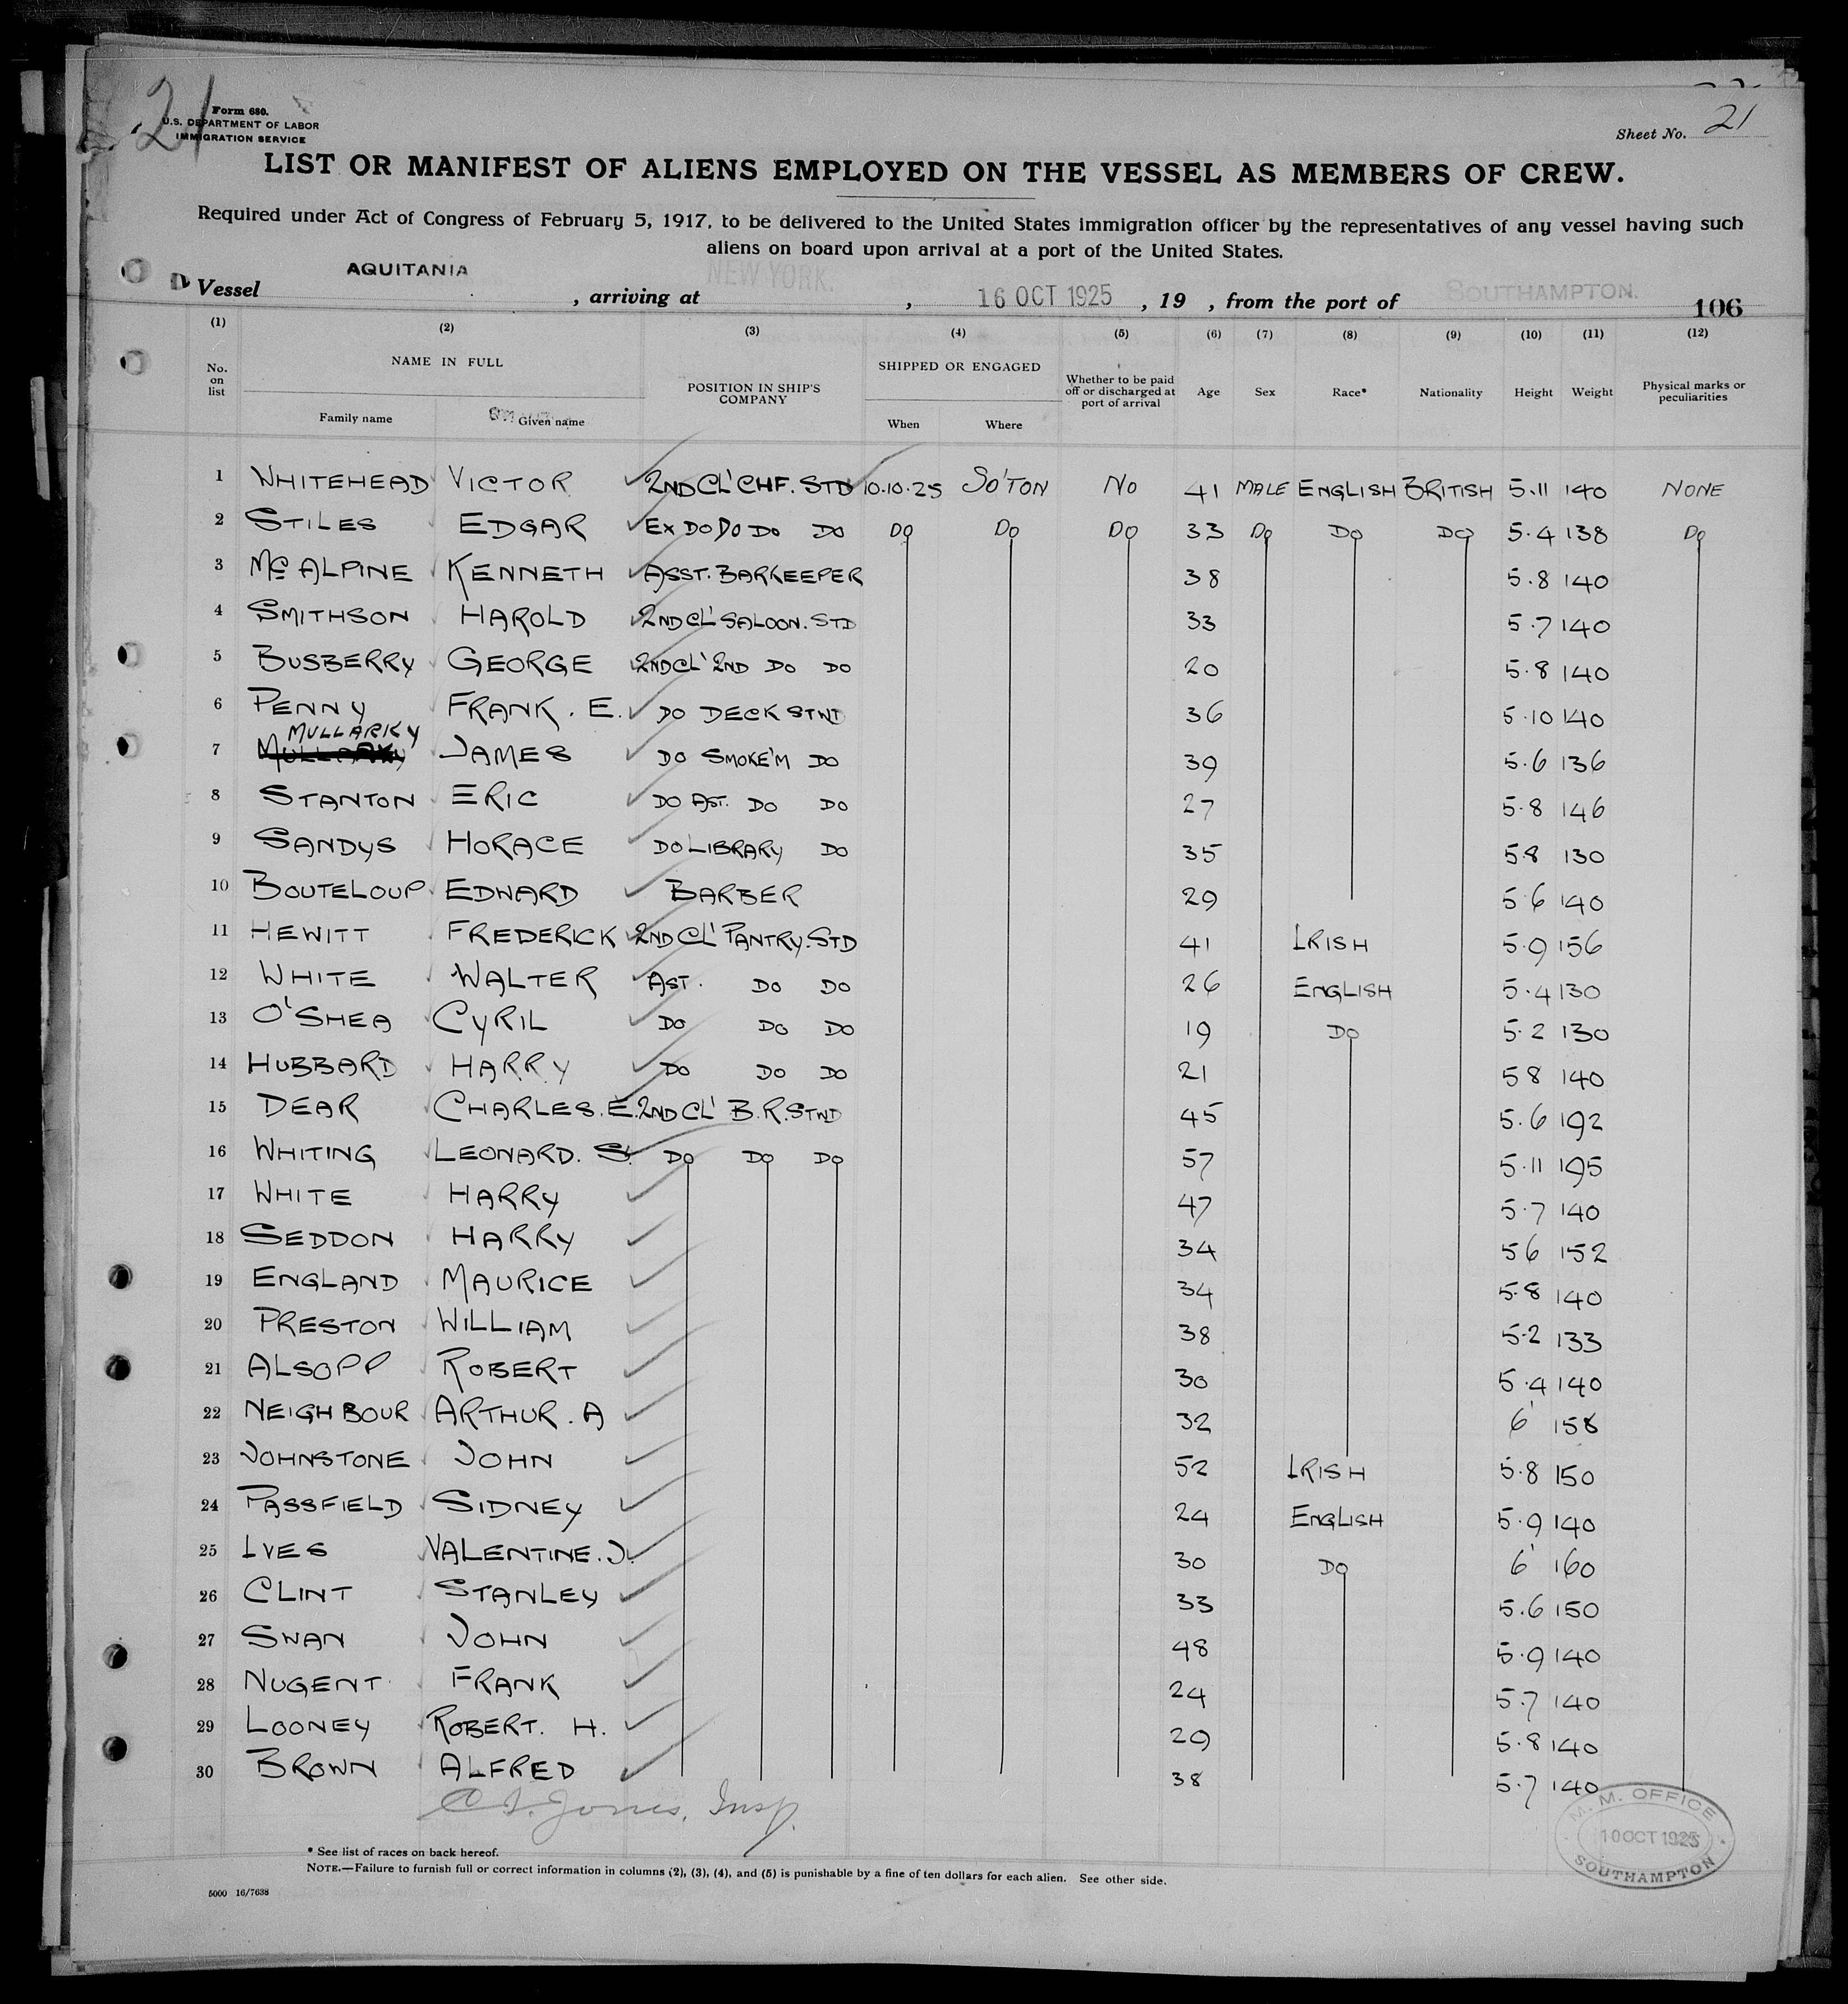 21
Form 680.
U.S. DEPARTMENT OF LABOR
IMMIGRATION SERVICE
Sheet No. 21
LIST OR MANIFEST OF ALIENS EMPLOYED ON THE VESSEL AS MEMBERS OF CREW.
Required under Act of Congress of February 5, 1917, to be delivered to the United States immigration officer by the representatives of any vessel having such
aliens on board upon arrival at a port of the United States.
Vessel AQUITANIA, arriving at NEW YORK., 16 OCT 1925, 19 , from the port of SOUTHAMPTON.
106
(1) (2) (3) (4) (5) (6) (7) (8) (9) (10) (11) (12)
No. on list NAME IN FULL Family name Given name POSITION IN SHIP'S COMPANY SHIPPED OR ENGAGED When Where Whether to be paid off or discharged at port of arrival Age Sex Race* Nationality Height Weight Physical marks or peculiarities
1 WHITEHEAD VICTOR 2ND CL' CHF. STD 10.10.25 SO'TON NO 41 MALE ENGLISH BRITISH 5.11 140 NONE
2 STILES EDGAR EX DO DO DO DO DO DO DO 33 DO DO DO 5.4 138 DO
3 Mc ALPINE KENNETH ASST. BARKEEPER 38 5.8 140
4 SMITHSON HAROLD 2ND CL' SALOON. STD 33 5.7 140
5 BUSBERRY GEORGE 2ND CL' 2ND DO DO 20 5.8 140
6 PENNY FRANK. E. DO DECK STWD 36 5.10 140
MULLARKY
7 JAMES DO SMOKE'M DO 39 5.6 136
8 STANTON ERIC DO AST. DO DO 27 5.8 146
9 SANDYS HORACE DO LIBRARY DO 35 5.8 130
10 BOUTELOUP EDWARD BARBER 29 5.6 140
11 HEWITT FREDERICK 2ND CL' PANTRY. STD 41 IRISH 5.9 156
12 WHITE WALTER AST. DO DO 26 ENGLISH 5.4 130
13 O'SHEA CYRIL DO DO DO 19 DO 5.2 130
14 HUBBARD HARRY DO DO DO 21 5 8 140
15 DEAR CHARLES. E. 2ND CL' B.R. STWD 45 5.6 192
16 WHITING LEONARD. S. DO DO DO 57 5.11 195
17 WHITE HARRY 47 5.7 140
18 SEDDON HARRY 34 5 6 152
19 ENGLAND MAURICE 34 5.8 140
20 PRESTON WILLIAM 38 5.2 133
21 ALSOPP ROBERT 30 5.4 140
22 NEIGHBOUR ARTHUR. A 32 6' 158
23 JOHNSTONE JOHN 52 IRISH 5.8 150
24 PASSFIELD SIDNEY 24 ENGLISH 5.9 140
25 IVES VALENTINE. J. 30 DO 6' 160
26 CLINT STANLEY 33 5.6 150
27 SWAN JOHN 48 5.9 140
28 NUGENT FRANK 24 5.7 140
29 LOONEY ROBERT. H. 29 5.8 140
30 BROWN ALFRED 38 5.7 140
Jones, Insp.
M. M. OFFICE
10 OCT 1925
SOUTHAMPTON
* See list of races on back hereof.
NOTE.—Failure to furnish full or correct information in columns (2), (3), (4), and (5) is punishable by a fine of ten dollars for each alien. See other side.
5000 16/7638